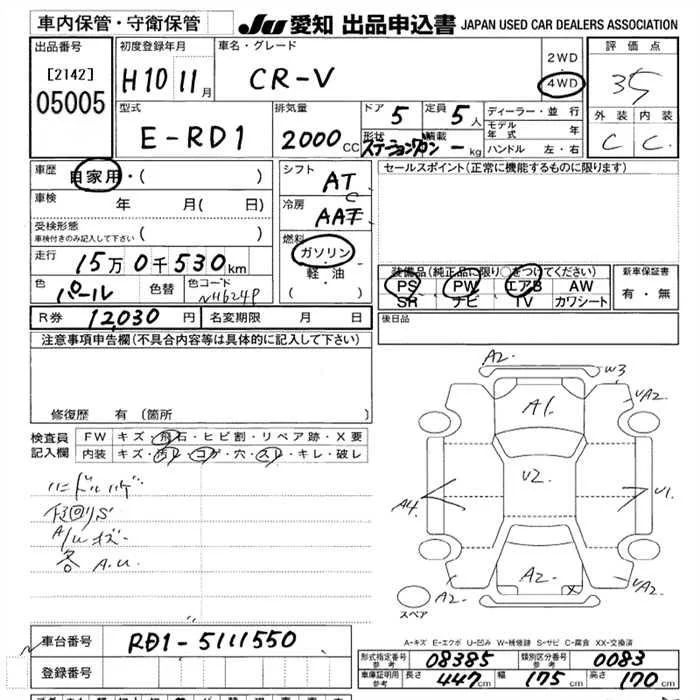 車内保管・守衛保管
JU 愛知 出品申込書 JAPAN USED CAR DEALERS ASSOCIATION
出品番号
[2142]
05005
初度登録年月
H10 11月
車名・グレード
CR-V
2WD
4WD
評価点
3.5
外装 内装
C C
型式
E-RD1
排気量
2000cc
ドア 5
定員 5人
形状 ステーションワゴン
積載 - kg
ディーラー・並行
モデル年式 年
ハンドル 左・右
車歴
自家用・( )
車検 年 月( 日)
受検形態
車検付きのみ記入して下さい ( )
走行 15万0千530km
色 パール 色替 色コード NH624P
シフト AT
冷房 AAC
燃料
ガソリン
軽油
( )
セールスポイント(正常に機能するものに限ります)
装備品(純正品に限り○をつけてください)
PS PW エアB AW
SR ナビ TV カワシート
新車保証書
有・無
R券 12,030円 名変期限 月 日
後日品
注意事項申告欄(不具合内容等は具体的に記入して下さい)
修復歴 有(箇所
検査員記入欄
FW キズ・飛石・ヒビ割・リペア跡・X要
内装 キズ・汚レ・コゲ・穴・スレ・キレ・破レ
ハンドルハゲ
下回りS
A/Uキズ
各A.U.
A2
W3
A1
UA2
U2
A4
U1
A2
A2
A2
X
スペア
A-キズ E-エクボ U-凹み W-補修跡 S-サビ C-腐食 XX-交換済
車台番号 RD1-5111550
登録番号
形式指定番号 参考 08385 類別区分番号 参考 0083
車庫証明用 参考 長さ 447cm 幅 175cm 高さ 170cm